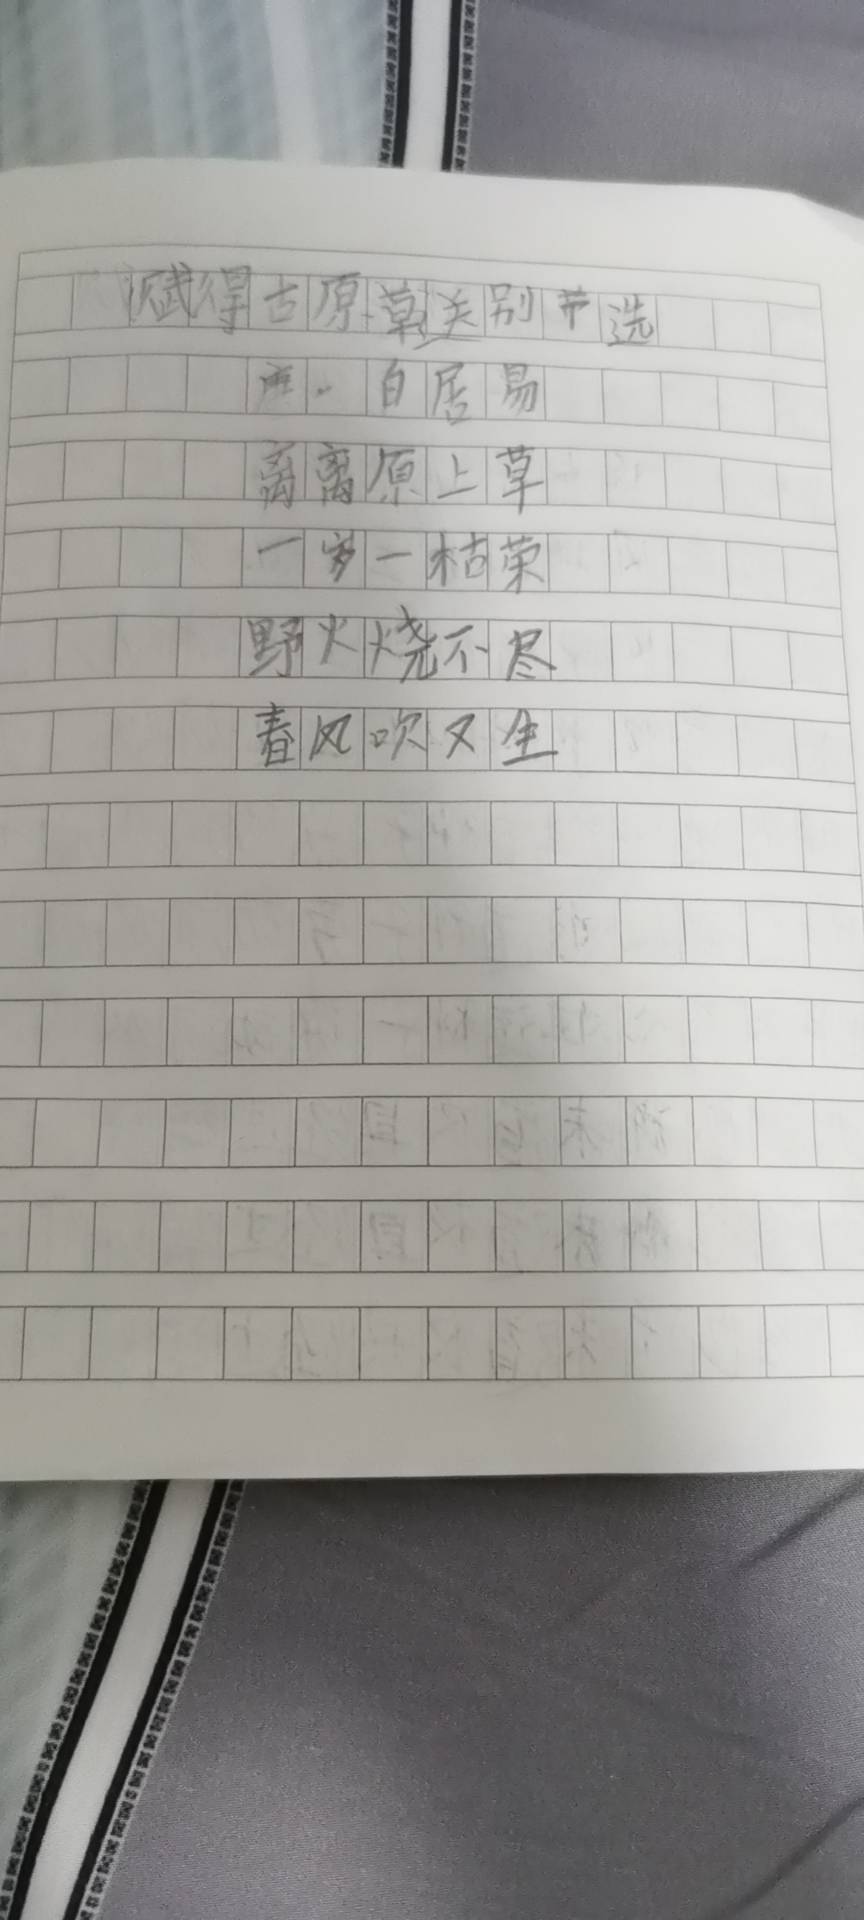 赋得古原草送别节选
唐·白居易
离离原上草
一岁一枯荣
野火烧不尽
春风吹又生